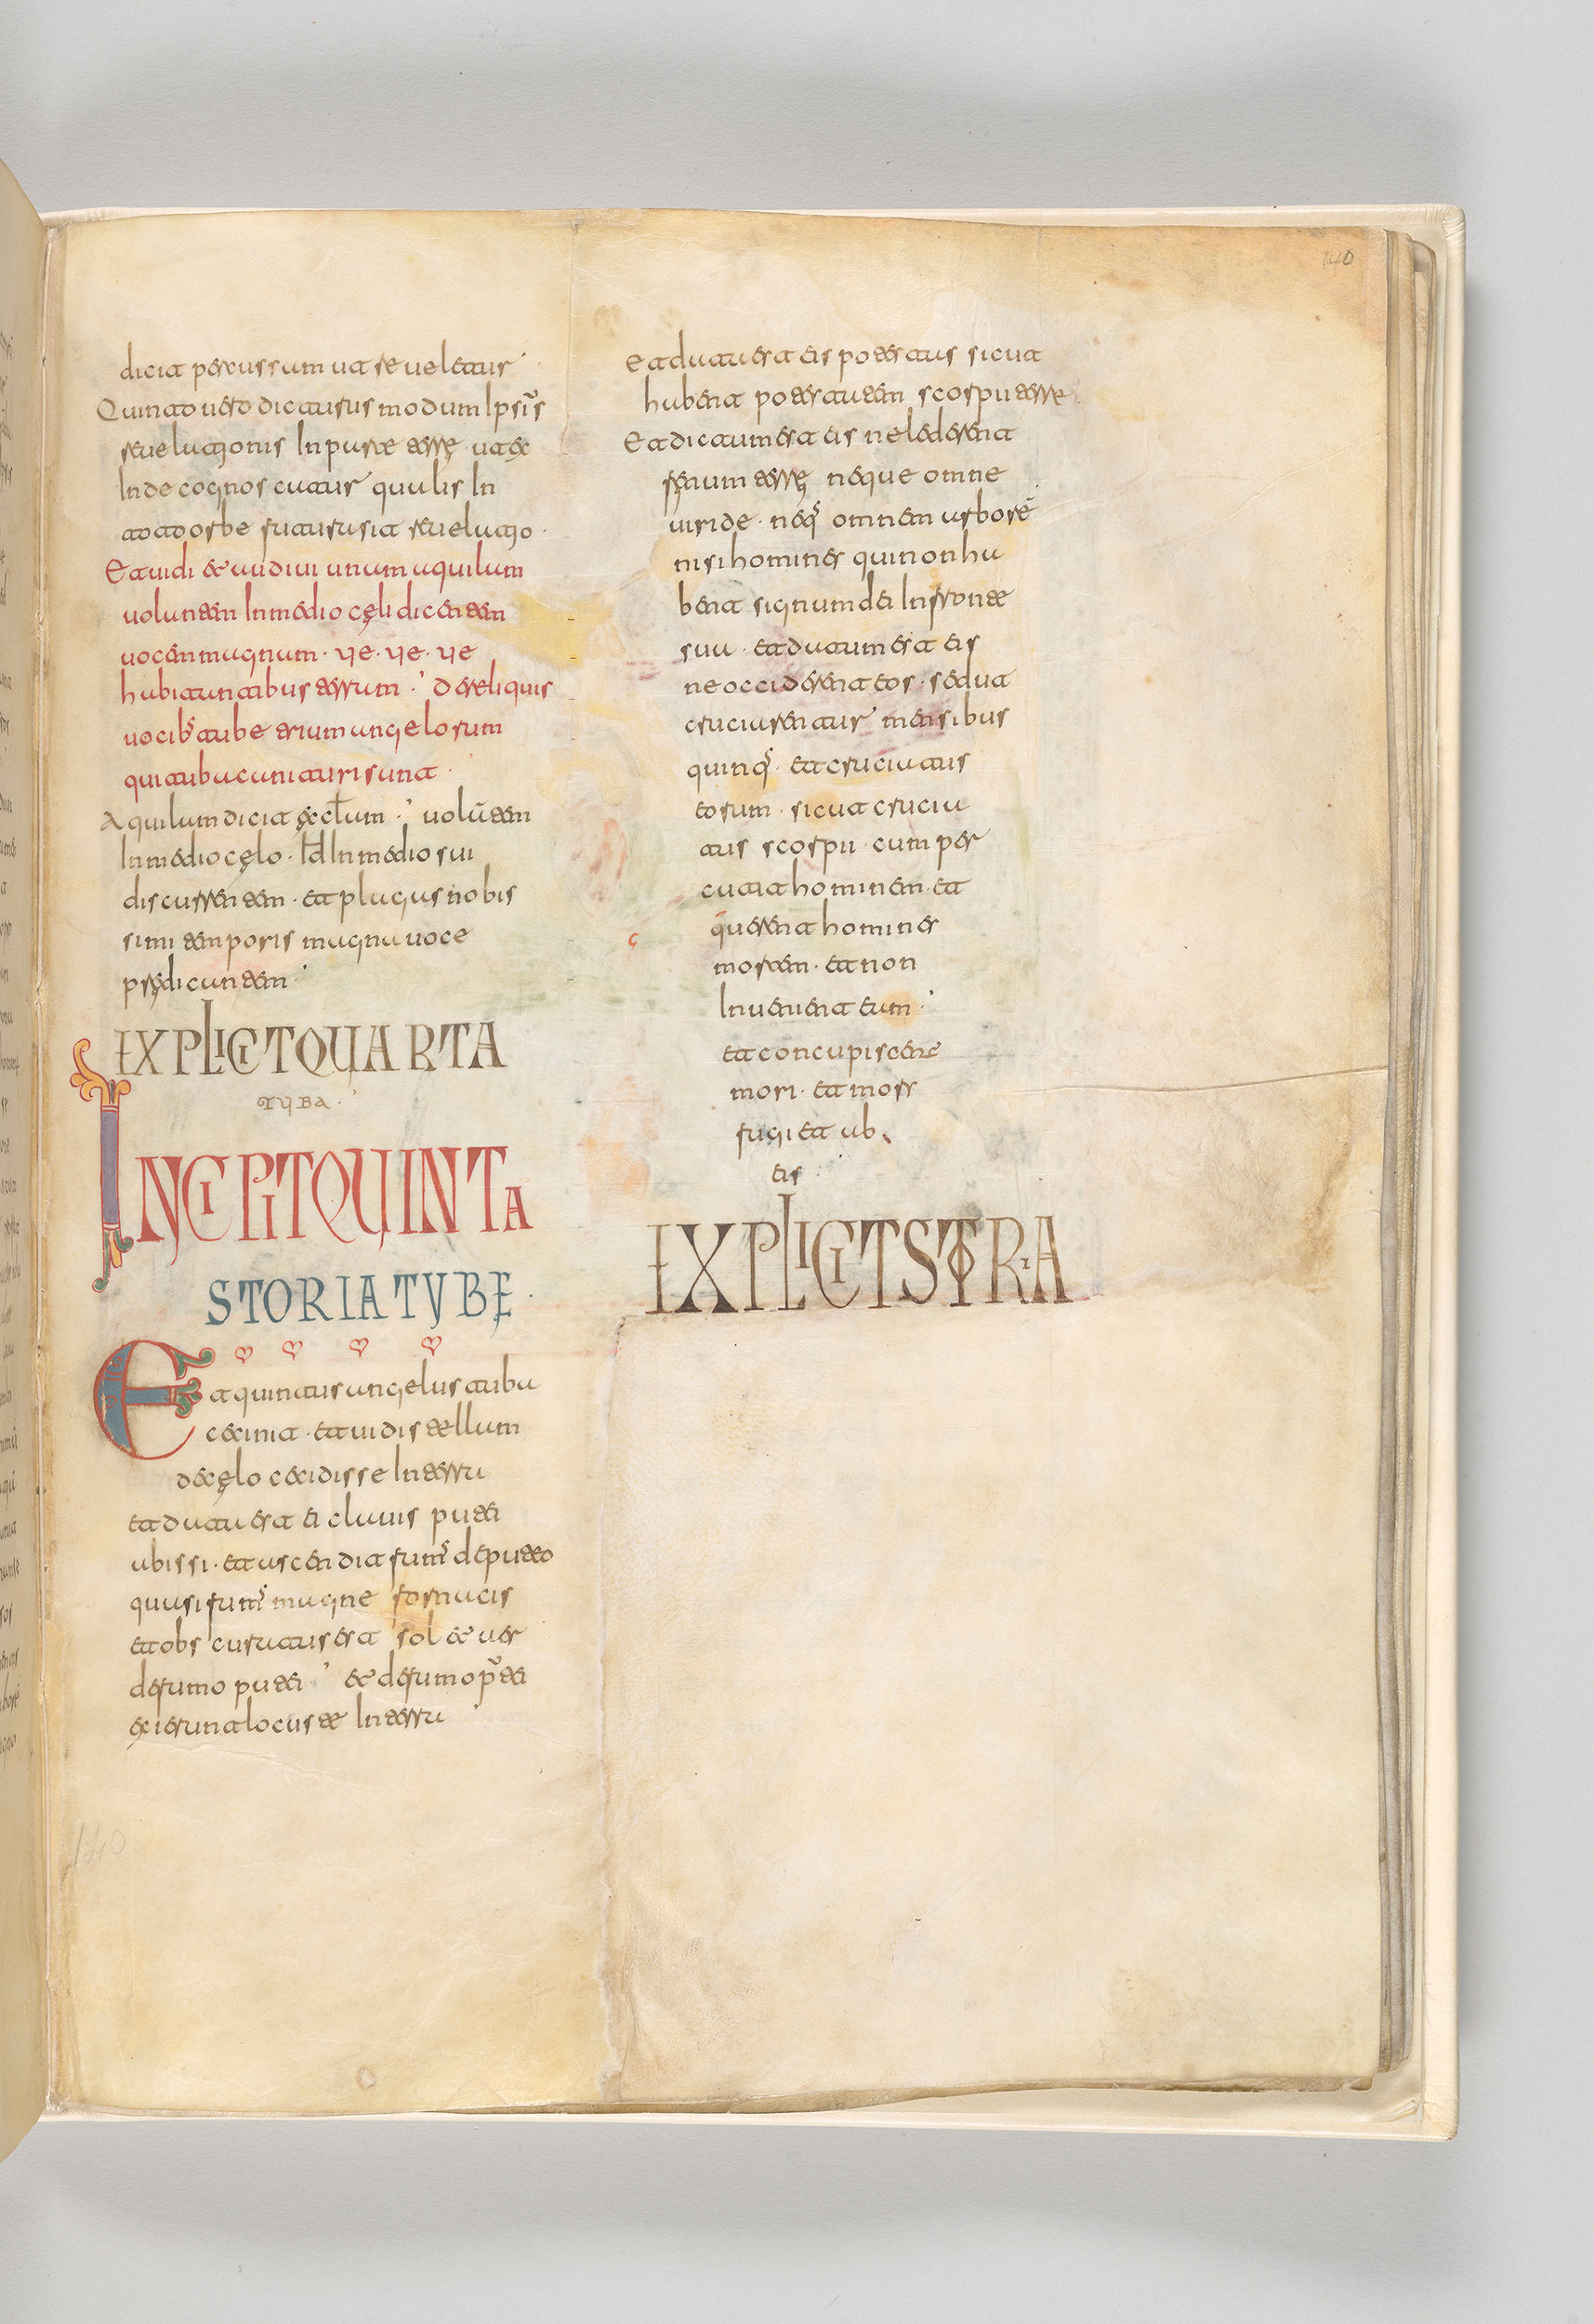 140
dicit percussum ut reueletur
Quinto uero dicturus modum Ipsi͞s
reuelationis In parte terrę ut ex
Inde cognoscatur qualis In
toto orbe futurus it reuelatio
Et uidi et audiui unum aquilam
uolantem In medio cęli dicentem
uocem magnam · ue · ue · ue
habitantibus terram · de reliquis
uocibs tube trium angelorum
qui tuba canituri sunt ·
Aquilam dicit ęccl̄am · uolūtem
In medio cęlo · Id In medio sui
discurrentem · et plagas nobis
simi temporis magna uoce
prędicantem ·
EXPLICIT QUARTA
TUBA ·
INCIPIT QUINTA
STORIA TUBE ·
Et quintus angelus tuba
cecinit · et uidi stellam
de cęlo cecidisse In terra
et data est ei clauis putei
abissi · et ascendit fums de puteo
quasi fums magne fornacis
et obscuratus est sol et aer
de fumo putei · et de fumo p̄tei
exierunt locuste In terra
Et data est eis potestas sicut
habent potestatem scorpii terre
Et dictum est eis ne lederent
fęnum terrę neque omne
uiride · neq omnem arborē
nisi homines qui non ha
bent signum dei In fronte
sua · et datum est eis
ne occiderent eos · sed ut
cruciarentur mensibus
quinq · et cruciatus
eorum · sicut crucia
tus scorpii · cum per
cutit hominem · et
querent homines
mortem · et non
Inuenient eum ·
et concupiscent
mori · et mors
fugiet ab
eis ·
EXPLICIT STRA
140